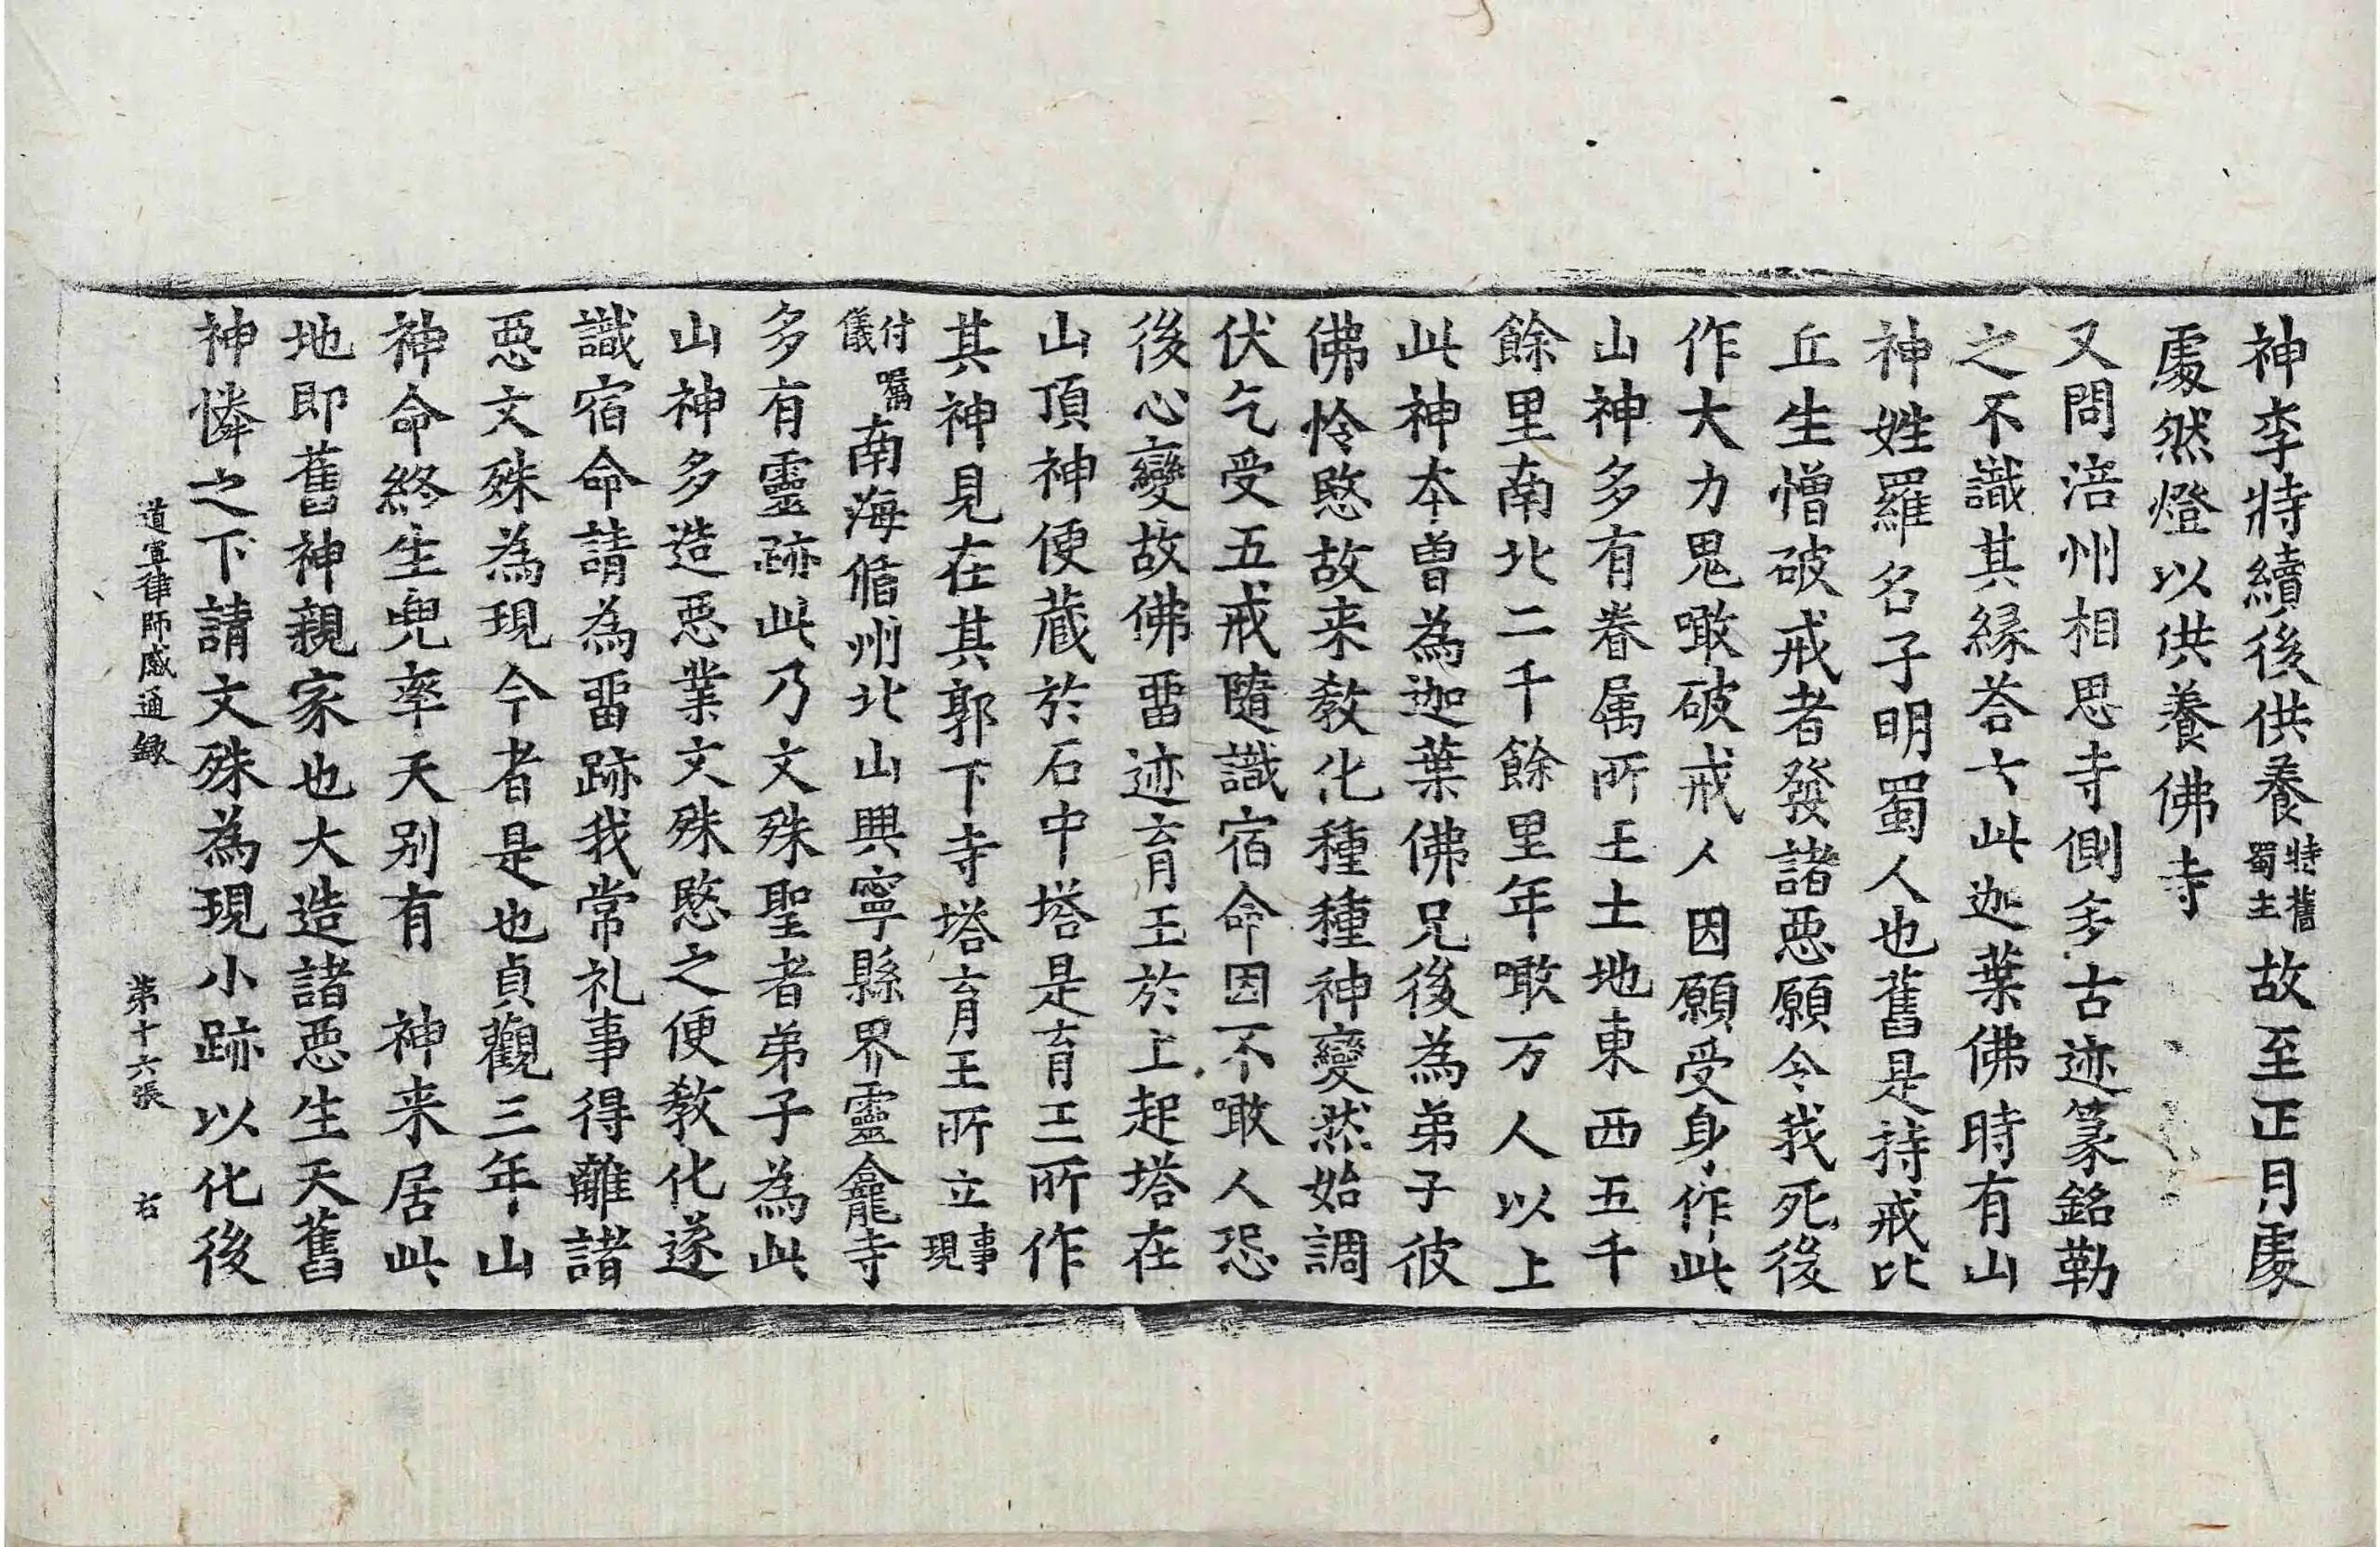 神李特續後供養特舊蜀主故至正月處
處然燈以供養佛寺
又問涪州相思寺側多古迹篆銘勒
之不識其緣荅云此迦葉佛時有山
神姓羅名子明蜀人也舊是持戒比
丘生憎破戒者發諸惡願令我死後
作大力鬼噉破戒人因願受身作此
山神多有眷属所王土地東西五千
餘里南北二千餘里年噉万人以上
此神本曾為迦葉佛兄後為弟子彼
佛怜愍故来教化種種神變然始調
伏乞受五戒隨識宿命因不噉人恐
後心變故佛畱迹育王於上起塔在
山頂神便蔵於石中塔是育王所作
其神見在其郭下寺塔育王所立事現
付囑儀南海循州北山興寧縣界靈龕寺
多有靈跡此乃文殊聖者弟子為此
山神多造惡業文殊愍之便教化遂
識宿命請為畱跡我常礼事得離諸
惡文殊為現今者是也貞觀三年山
神命終生兜率天別有 神来居此
地即舊神親家也大造諸惡生天舊
神憐之下請文殊為現小跡以化後
道宣律師感通錄 第十六張 右